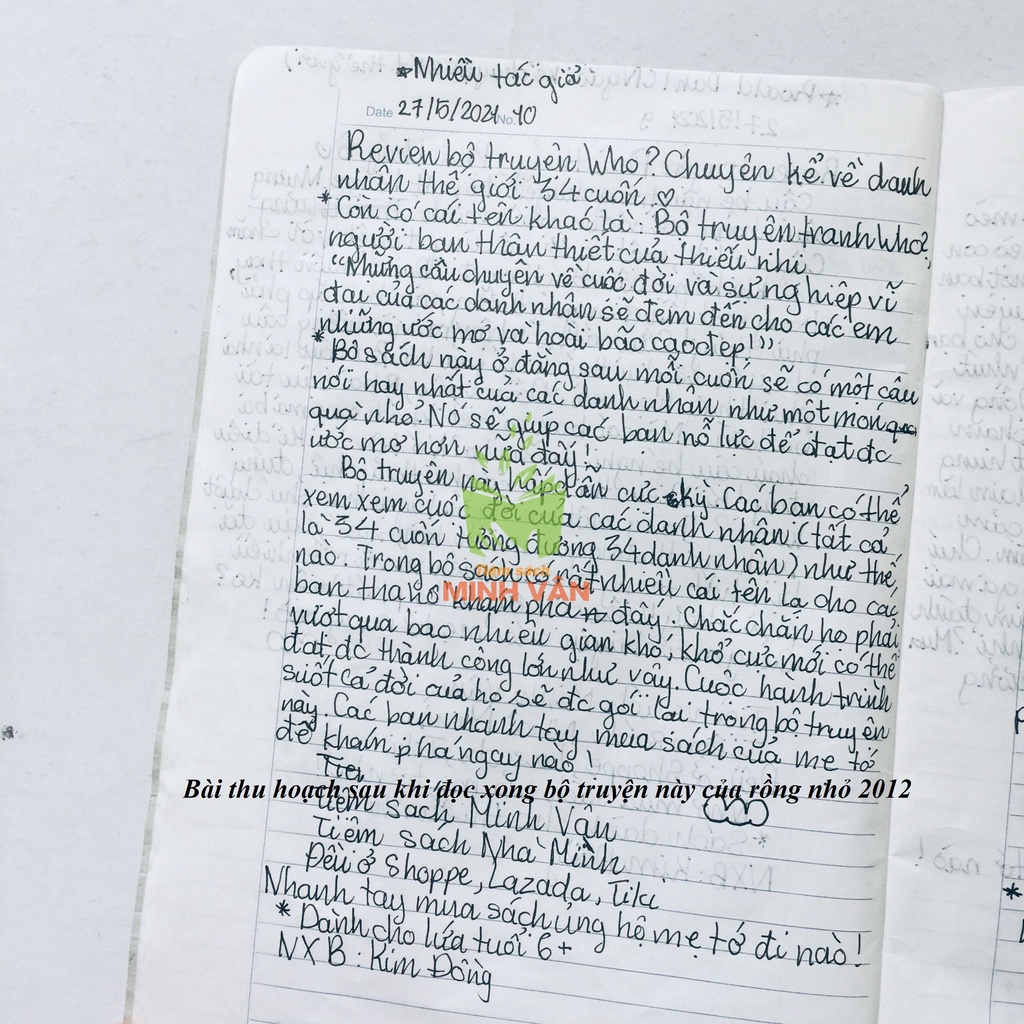 *Nhiều tác giả
Date 27/5/2021 No. 10
Review bộ truyện Who? Chuyện kể về danh
nhân thế giới 34 cuốn ♡
* Còn có cái tên khác là: Bộ truyện tranh Who?,
người bạn thân thiết của thiếu nhi
"Những câu chuyện về cuộc đời và sự nghiệp vĩ
đại của các danh nhân sẽ đem đến cho các em
những ước mơ và hoài bão cao đẹp!"
* Bộ sách này ở đằng sau mỗi cuốn sẽ có một câu
nói hay nhất của các danh nhân như một món quà
quà nhỏ. Nó sẽ giúp các bạn nỗ lực để đạt đc
ước mơ hơn nữa đấy!
Bộ truyện này hấp dẫn cực kỳ. Các bạn có thể
xem xem cuộc đời của các danh nhân (tất cả
là 34 cuốn tương đương 34 danh nhân) như thế
nào. Trong bộ sách có rất nhiều cái tên lạ cho các
bạn tha hồ khám phá đấy. Chắc chắn họ phải
vượt qua bao nhiêu gian khó, khổ cực mới có thể
đạt đc thành công lớn như vậy. Cuộc hành trình
suốt cả đời của họ sẽ đc gói lại trong bộ truyện
này. Các bạn nhanh tay mua sách của mẹ tớ
để khám phá ngay nào!
Tiệ
Bài thu hoạch sau khi đọc xong bộ truyện này của rồng nhỏ 2012
Tiệm sách Minh Vân
Tiệm sách Nhà Mình
Đều ở Shoppe, Lazada, Tiki
Nhanh tay mua sách ủng hộ mẹ tớ đi nào!
* Dành cho lứa tuổi 6+
NXB: Kim Đồng
Tiệm sách
MINH VÂN